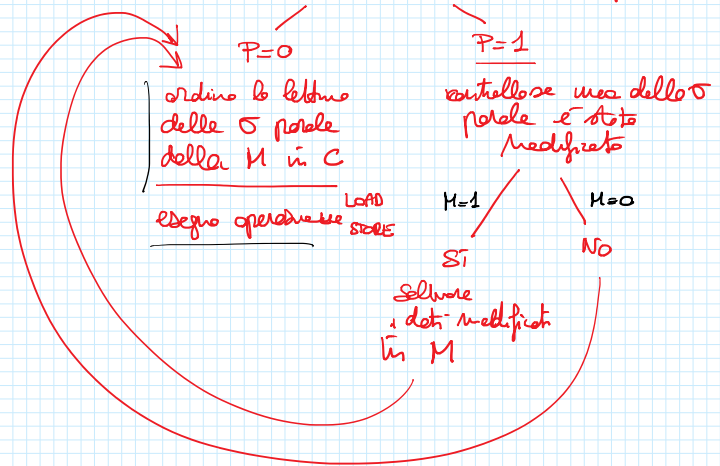 P=0
ordino la lettura
delle σ parole
della M in C
eseguo operazione LOAD
STORE
P=1
controllo se una delle σ
parole è stata
modificata
M=1
M=0
SÌ
NO
salvare
i dati modificati
in M